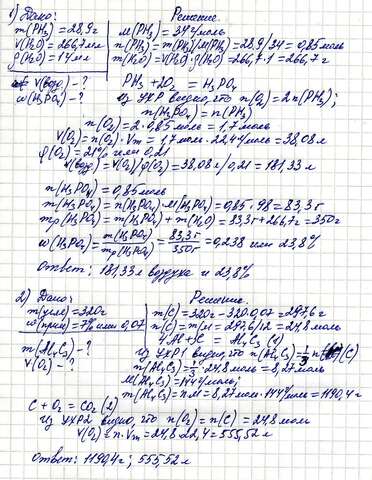 1) Дано:
m(PH3) = 28,9г
V(H2O) = 266,7мл
ρ(H2O) = 1г/мл
V(возд.) - ?
ω(H3PO4) - ?
Решение.
M(PH3) = 34г/моль
n(PH3) = m(PH3)/M(PH3) = 28,9/34 = 0,85 моль
m(H2O) = V(H2O)·ρ(H2O) = 266,7·1 = 266,7г
PH3 + 2O2 = H3PO4
Из УХР видно, что n(O2) = 2n(PH3);
n(H3PO4) = n(PH3)
n(O2) = 2·0,85 моль = 1,7 моль
V(O2) = n(O2)·Vm = 1,7 моль·22,4л/моль = 38,08л
φ(O2) = 21% или 0,21
V(возд) = V(O2)/φ(O2) = 38,08л/0,21 = 181,33л
n(H3PO4) = 0,85 моль
m(H3PO4) = n(H3PO4)·M(H3PO4) = 0,85·98 = 83,3г
mр(H3PO4) = m(H3PO4) + m(H2O) = 83,3г + 266,7г = 350г
ω(H3PO4) = m(H3PO4)/mр(H3PO4) = 83,3г/350г = 0,238 или 23,8%
Ответ: 181,33л воздуха и 23,8%
2) Дано:
m(угля) = 320г
ω(прим) = 7% или 0,07
m(Al4C3) - ?
V(O2) - ?
Решение.
m(C) = 320г - 320·0,07 = 297,6г
n(C) = m/M = 297,6/12 = 24,8 моль
4Al + C = Al4C3 (1)
Из УХР1 видно, что n(Al4C3) = 1/3 n(C)
n(Al4C3) = 1/3·24,8 моль = 8,27 моль
M(Al4C3) = 144г/моль;
m(Al4C3) = n·M = 8,27 моль·144г/моль = 1190,4г
C + O2 = CO2 (2)
Из УХР2 видно, что n(O2) = n(C) = 24,8 моль
V(O2) = n·Vm = 24,8·22,4 = 555,52л
Ответ: 1190,4г; 555,52л